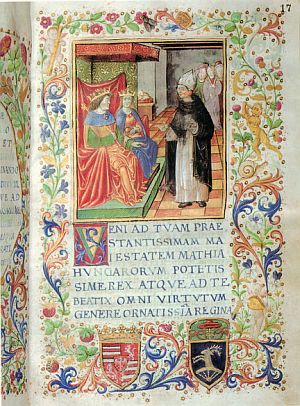 17
VENI AD TVAM PRAE
STANTISSIMAM MA
IESTATEM MATHIA
HVNGARORVM POTĒTIS
SIME REX ATQVE AD TE
BEATIX OMNI VIRTVTVM
GENERE ORNATISSĪA REGINA